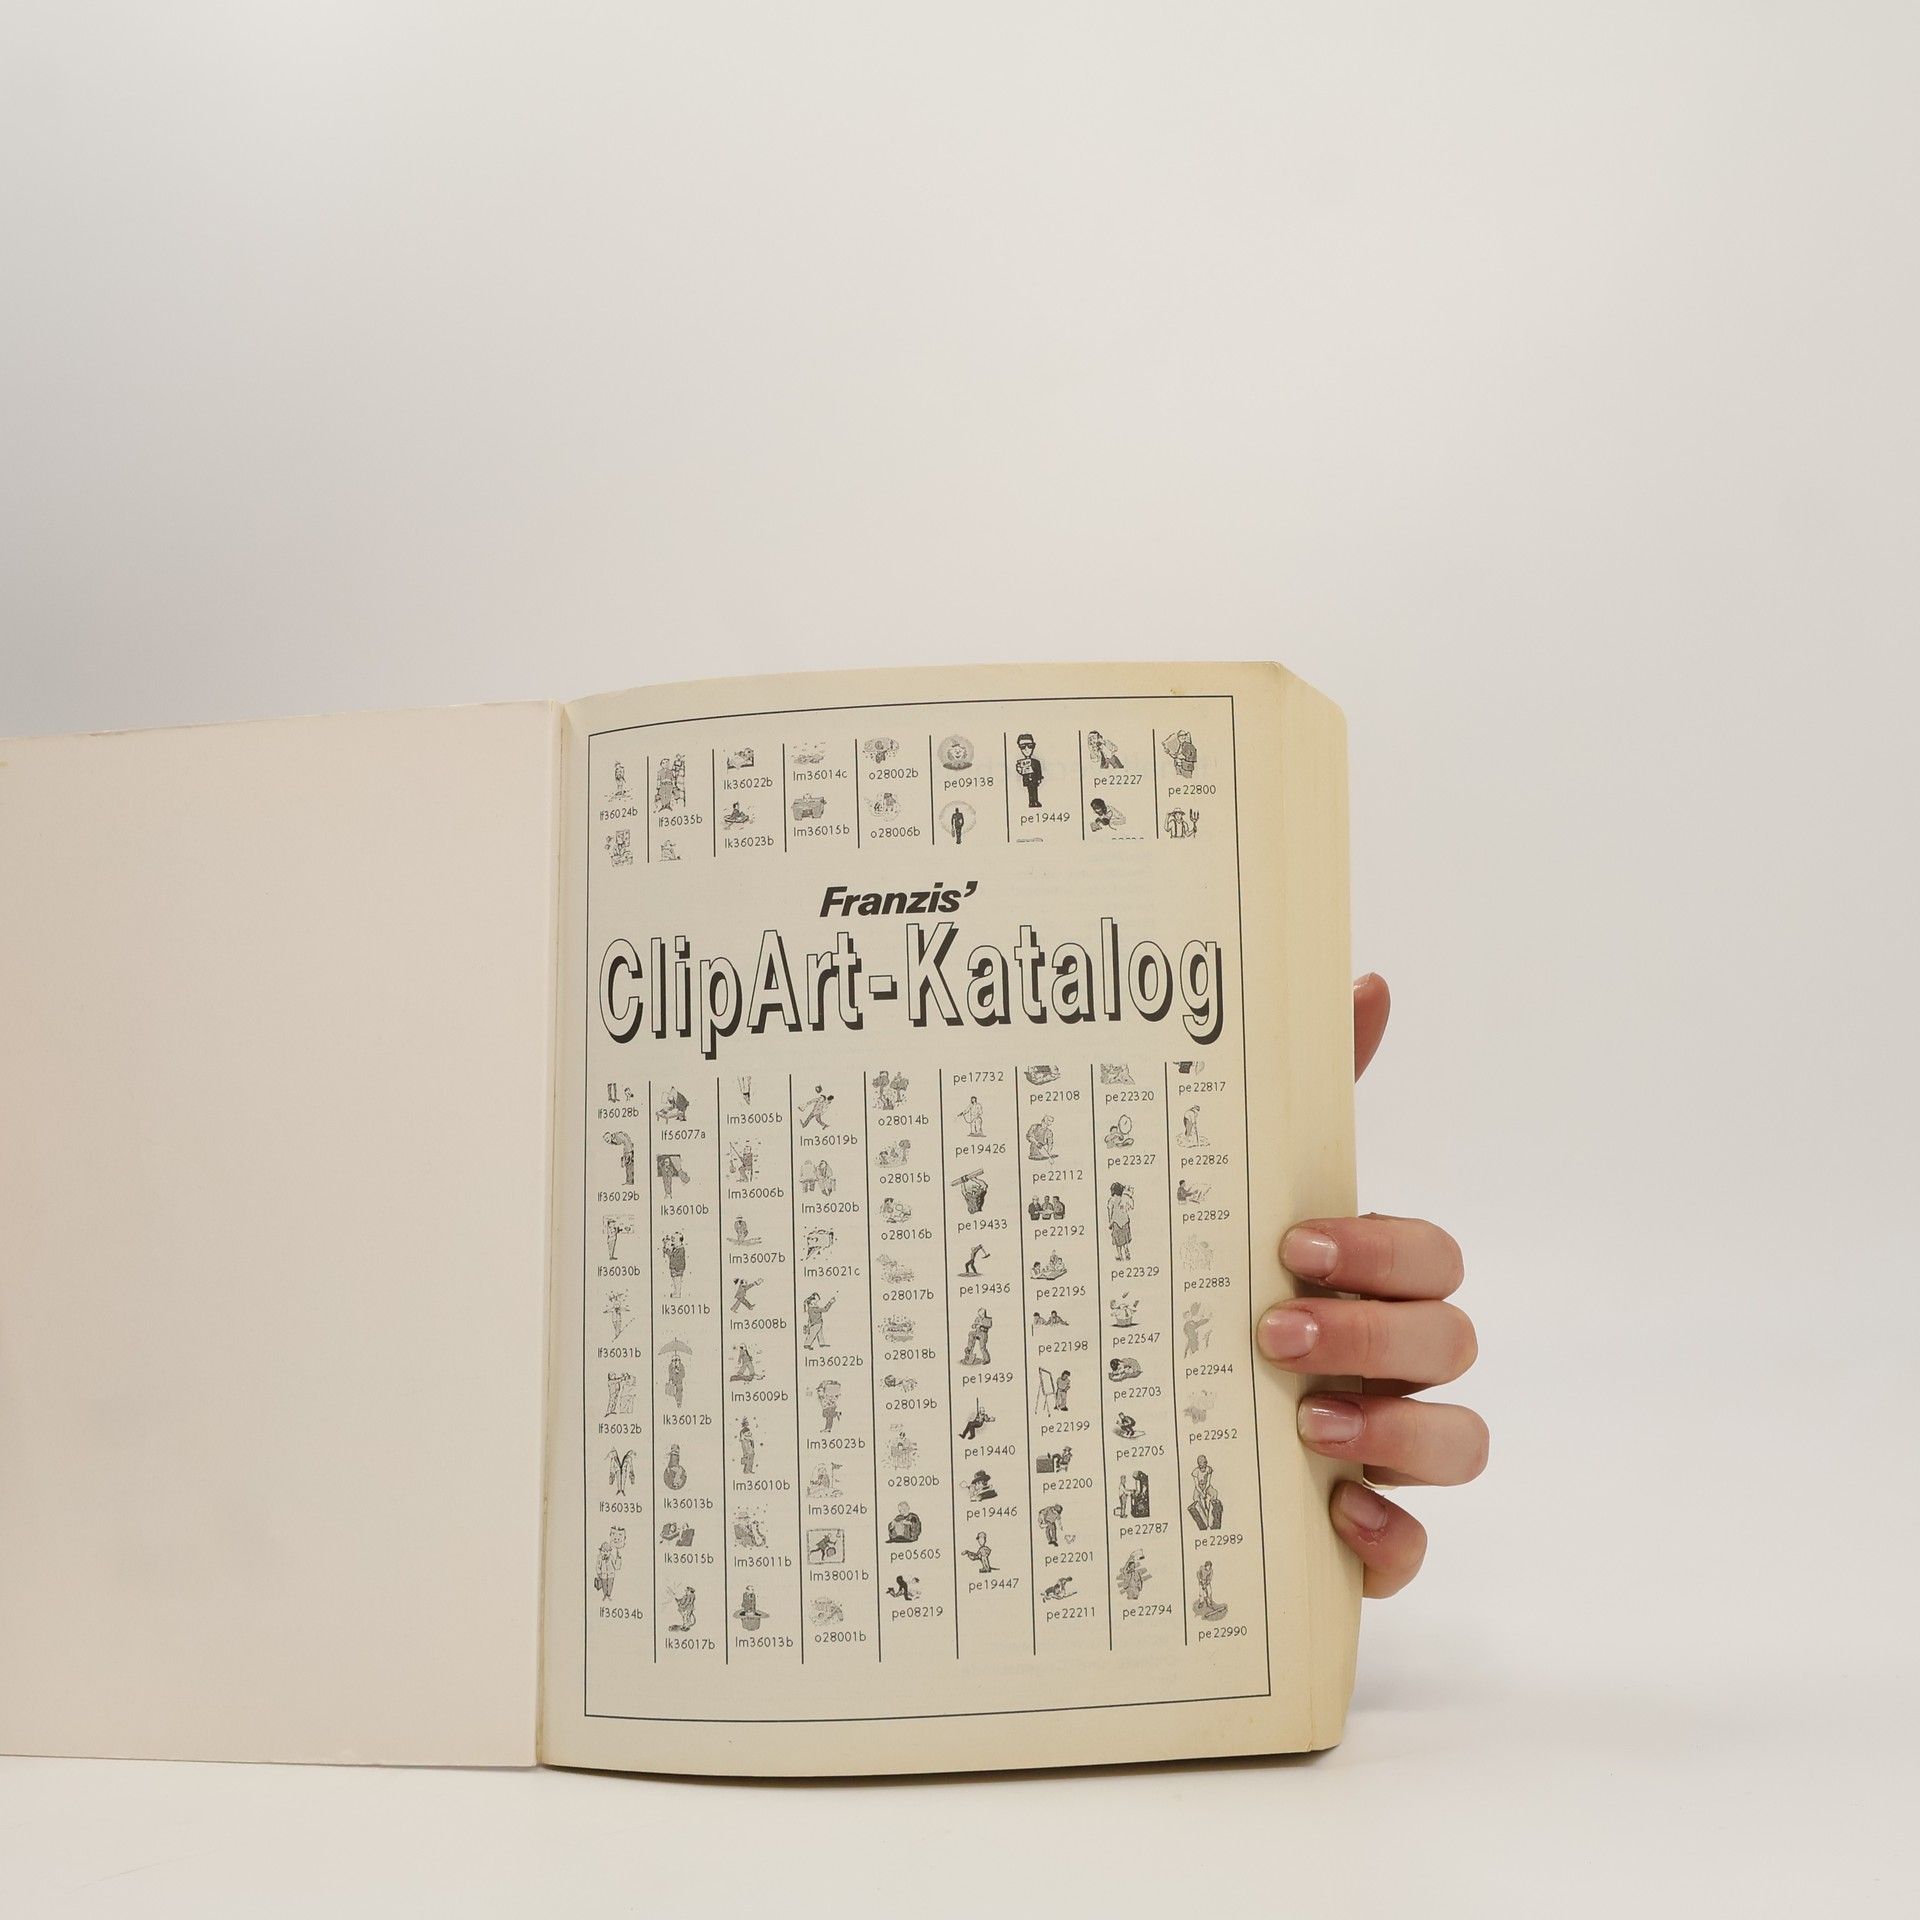 lf36024b
lf36035b
lk36022b
lk36023b
lm36014c
lm36015b
o28002b
o28006b
pe09138
pe19449
pe22227
pe22800
Franzis’
ClipArt-Katalog
lf36028b
lf36029b
lf36030b
lf36031b
lf36032b
lf36033b
lf36034b
lf56077a
lk36010b
lk36011b
lk36012b
lk36013b
lk36015b
lk36017b
lm36005b
lm36006b
lm36007b
lm36008b
lm36009b
lm36010b
lm36011b
lm36013b
lm36019b
lm36020b
lm36021c
lm36022b
lm36023b
lm36024b
lm38001b
o28001b
o28014b
o28015b
o28016b
o28017b
o28018b
o28019b
o28020b
pe05605
pe08219
pe17732
pe19426
pe19433
pe19436
pe19439
pe19440
pe19446
pe19447
pe22108
pe22112
pe22192
pe22195
pe22198
pe22199
pe22200
pe22201
pe22211
pe22320
pe22327
pe22329
pe22547
pe22703
pe22705
pe22787
pe22794
pe22817
pe22826
pe22829
pe22883
pe22944
pe22952
pe22989
pe22990